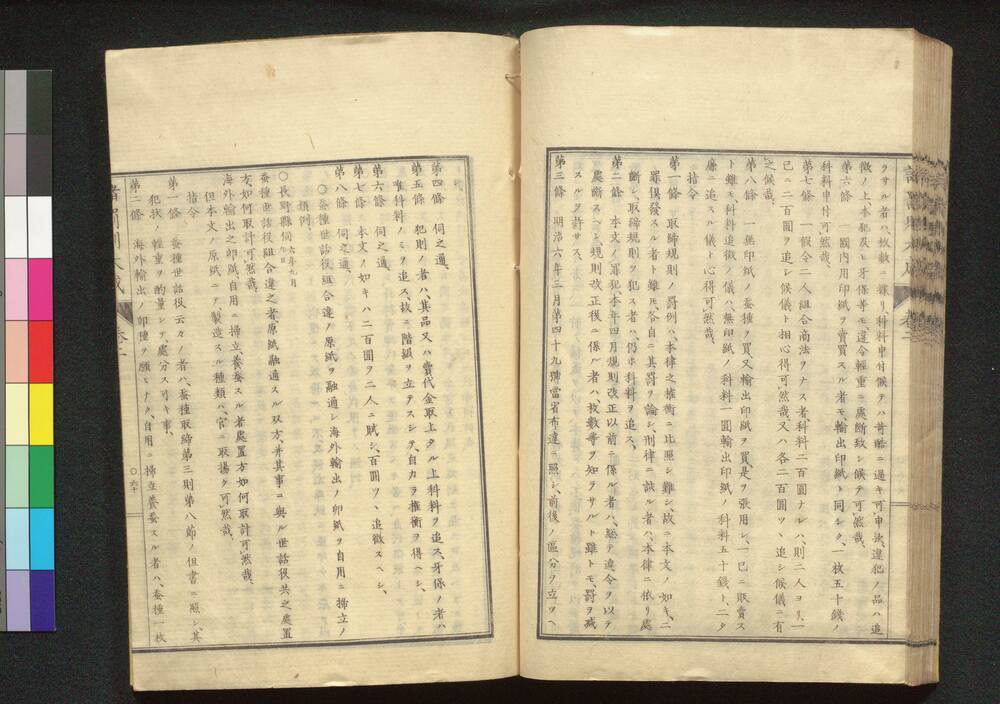 ラサル者ハ、枚數ニ據リ、科料申付候テハ苛酷ニ過キ可申、決違犯ノ品ハ追
徴ノ上、本犯及ヒ牙保等モ違令輕重ニ處斷致シ候テ可然哉、
第六條 一國内用印紙ヲ賣買スル者モ、輸出印紙ト同シク、一枚五十錢ノ
科料申付可然哉、
第七條 一假令二人組合商法ヲナス者科料二百圓ナレハ、則二人ヨリ、一
已ニ二百圓ヲ追シ候儀ト相心得可然哉又ハ各二百圓ツヽ追シ候儀ニ有
之候哉、
第八條 一無印紙ノ蚕種ヲ買又輸出印紙ヲ買是ヲ張用シ、一已ニ販賣ス
ト雖モ、科料追徴ノ儀ハ、無印紙ノ科料一圓輸出印紙ノ科料五十錢ト、二タ
廉ニ追スル儀ト心得可然哉、
指令
第一條 取締規則ノ罰例ハ、本律之權衡ニ比照シ難シ、故ニ本文ノ如キ、二
罪倶發スル者ト雖モ各自ニ其罰ヲ論シ、刑律ニ該ル者ハ、本律ニ依リ處
斷シ、取締規則ヲ犯ス者ハ、仍ホ科料ヲ追ス、
第二條 本文ノ罪犯本年四月規則改正以前ニ係ル者ハ、總テ違令ヲ以テ
處斷スヘシ規則改正後ニ係ル者ハ、枚數等ヲ知ラサルト雖トモ、罰ヲ減
スルヲ許サス、
第三條 明治六年三月第四十九號當省布達ニ照シ、前後ノ區分ヲ立ツヘ
第四條 伺之通、
第五條 犯則ノ者ハ、其品又ハ賣代金取上タル上科料ヲ追ス、牙保ノ者ハ
唯科料ノミヲ追ス、故ニ階級ヲ立テスシテ、自カラ權衡ヲ得ヘシ、
第六條 伺之通、
第七條 本文ノ如キハ二百圓ヲ二人ニ賦シ、百圓ツヽ追徴スヘシ、
第八條 伺之通、
損例
〇蚕種世話役組合違ノ原紙ヲ融通シ海外輸出ノ印紙ヲ自用ニ掃立ノ
〇長野縣伺六年九月
蚕種世話役組合違之者原紙融通スル双方、并其事ニ與ル世話役共之處置
方、如何取計可然哉、
海外輸出之印紙自用ニ掃立養蚕スル者處置方如何取計可然哉、
但本文ノ原紙ニテ製造スル種類ハ、官ニ取揚ケ可然哉、
指令
第一條 蚕種世話役云々ノ者ハ、蚕種取締第三則第八節ノ但書ニ照シ、其
犯狀ノ輕重ヲ酌量シテ、處分ス可キ事、
第二條 海外輸出ノ印種ヲ願ヒナク、自用ニ掃立養蚕スル者ハ、蚕種一枚
〇六十